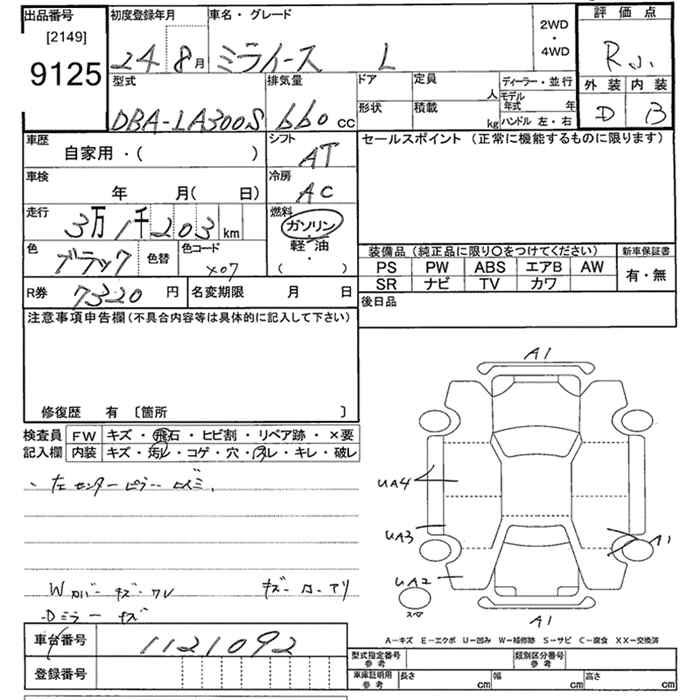 出品番号
[2149]
9125
初度登録年月
24 8月
車名・グレード
ミライース L
2WD
・
4WD
評価点
R
外装 内装
D B
型式
DBA-LA300S
排気量
660 cc
ドア
定員
人
ディーラー・並行
形状
積載
kg
モデル年式 年
ハンドル 左・右
車歴
自家用・( )
シフト
AT
セールスポイント (正常に機能するものに限ります)
車検
年 月( 日)
冷房
AC
走行
3万1千203km
燃料
ガソリン
・
軽・油
( )
色
ブラック
色替
色コード
X07
装備品 (純正品に限り〇をつけてください)
新車保証書
PS PW ABS エアB AW
SR ナビ TV カワ
有・無
R券
7320円
名変期限 月 日
後日品
注意事項申告欄 (不具合内容等は具体的に記入して下さい)
修復歴 有 〔箇所 〕
検査員記入欄
FW キズ・飛石・ヒビ割・リペア跡・×要
内装 キズ・汚レ・コゲ・穴・スレ・キレ・破レ
・左センターピラー
Wカバーキズ・ワレ
Dミラーキズ
A1
UA4
UA3
UA2
A1
A1
A-キズ E-エクボ U-凹み W-補修跡 S-サビ C-腐食 XX-交換済
車台番号
1121092
登録番号
型式指定番号 参考
類別区分番号 参考
車庫証明用 参考
長さ cm
幅 cm
高さ cm